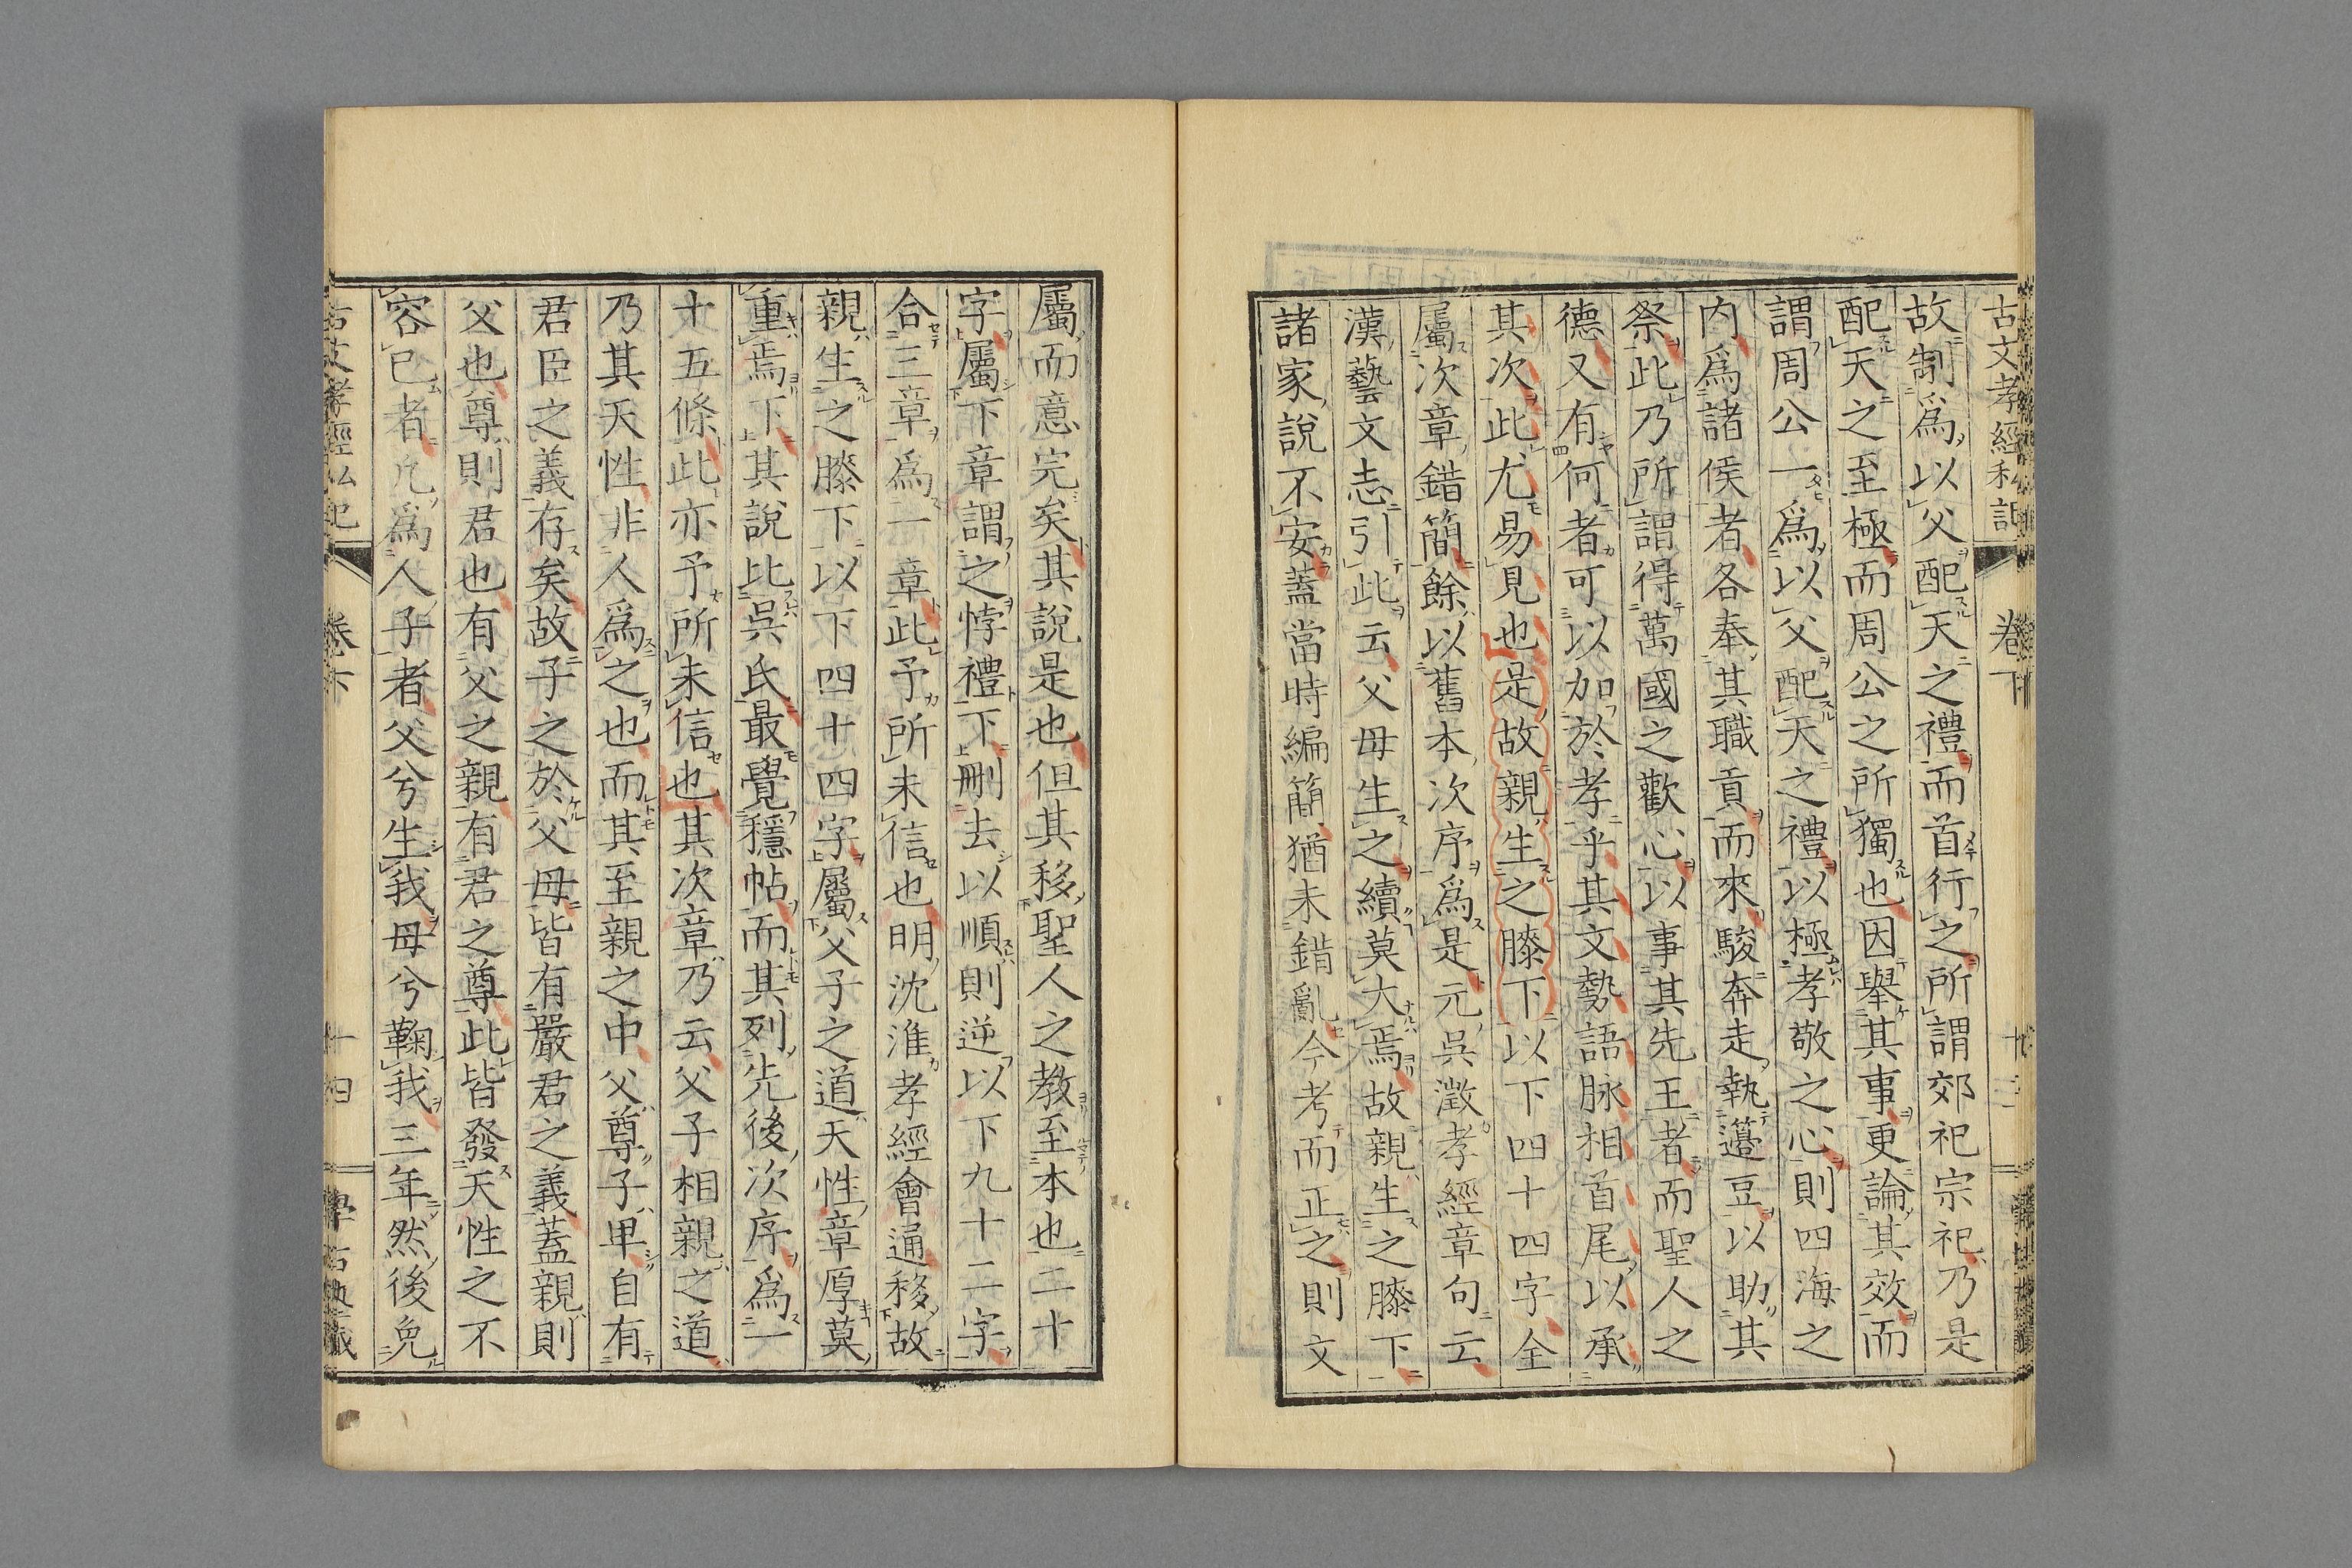 古文孝經私記 卷下
故制爲以父配天之禮而首行之所謂郊祀宗祀乃是
配天之至極而周公之所獨也因擧其事更論其效而
謂周公一爲以父配天之禮以極孝敬之心則四海之
内爲諸侯者各奉其職貢而來駿奔走執籩豆以助其
祭此乃所謂得萬國之歡心以事其先王者而聖人之
德又有何者可以加於孝乎其文勢語脉相首尾以承
其次此尤易見也是故親生之膝下以下四十四字全
屬次章錯簡餘以舊本次序爲是元吳澂孝經章句云
漢藝文志引此云父母生之續莫大焉故親生之膝下
諸家說不安蓋當時編簡猶未錯亂今考而正之則文
屬而意完矣其說是也但其移聖人之教至本也二十
字屬下章謂之悖禮下刪去以順則逆以下九十二字
合三章爲一章此予所未信也明沈淮孝經會通移故
親生之膝下以下四十四字屬父子之道天性章厚莫
重焉下其說比吳氏最覺穩帖而其列先後次序爲一
十五條此亦予所未信也其次章乃云父子相親之道
乃其天性非人爲之也而其至親之中父尊子卑自有
君臣之義存矣故子之於父母皆有嚴君之義蓋親則
父也尊則君也有父之親有君之尊此皆發天性之不
容已者凡爲人子者父兮生我母兮鞠我三年然後免
古文孝經私記 卷下 十四